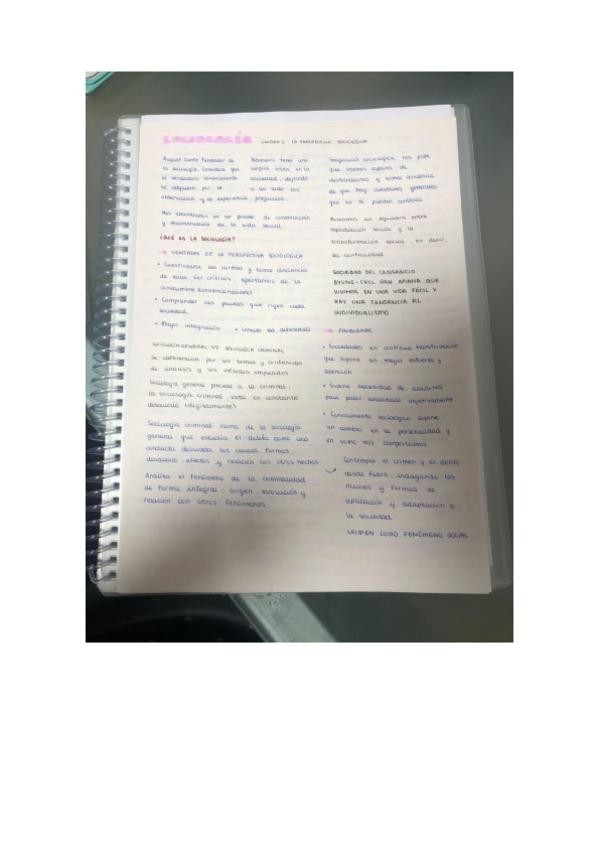 SOCIOLOGÍA UNIDAD 1: LA PERSPECTIVA SOCIOLÓGICA
August Comte fundador de
la sociología. Considera que
el verdadero conocimiento
se adquiere por la
observación y la experiencia
Necesario tener una
amplia visión en la
sociedad, dejando
a un lado los
prejuicios
Nos encontramos en un proceso de construcción
y reconstrucción de la vida social.
¿QUÉ ES LA SOCIOLOGÍA?
→ VENTAJAS DE LA PERSPECTIVA SOCIOLÓGICA
• Cuestionarse las normas y tomar conciencia
de ellas. Ser críticos, apartarnos de la
costumbre (convencionalismo)
• Comprender las pautas que rigen cada
sociedad.
• Mayor integración • Conocer las diferencias
SOCIOLOGÍA GENERAL VS SOCIOLOGÍA CRIMINAL
Se diferencian por los temas y contenidos
de análisis y los métodos empleados
Sociología general precede a la criminal,
la sociología criminal está en constante
desarrollo (digitalmente)
Sociología criminal rama de la sociología
general que estudia el delito como una
conducta desviada: las causas, formas,
desarrollo, efectos y relación con otros hechos
Analiza el fenómeno de la criminalidad
de forma integral: origen, evolución y
relación con otros fenómenos.
Imaginación sociológica, nos pide
que seamos capaces de
distanciarnos y tomar conciencia
de que hay cuestiones generales
que no se pueden controlar
Buscamos un equilibrio entre
reproducción social y la
transformación social, es decir,
la continuidad
SOCIEDAD DEL CANSANCIO
BYUNG-CHUL HAN AFIRMA QUE
VIVIMOS EN UNA VIDA FÁCIL Y
HAY UNA TENDENCIA AL
INDIVIDUALISMO
→ PROBLEMAS
• Sociedades en continua transformación
que supone un mayor esfuerzo y
atención
• Supone necesidad de alejarnos
para poder analizarlo objetivamente
• Conocimiento sociológico supone
un cambio en la personalidad y
en como nos comportamos.
Contempla el crimen y el delito
desde fuera, indagando los
mismos y formas de
aplicación y adaptación a
la sociedad.
CRIMEN COMO FENÓMENO SOCIAL